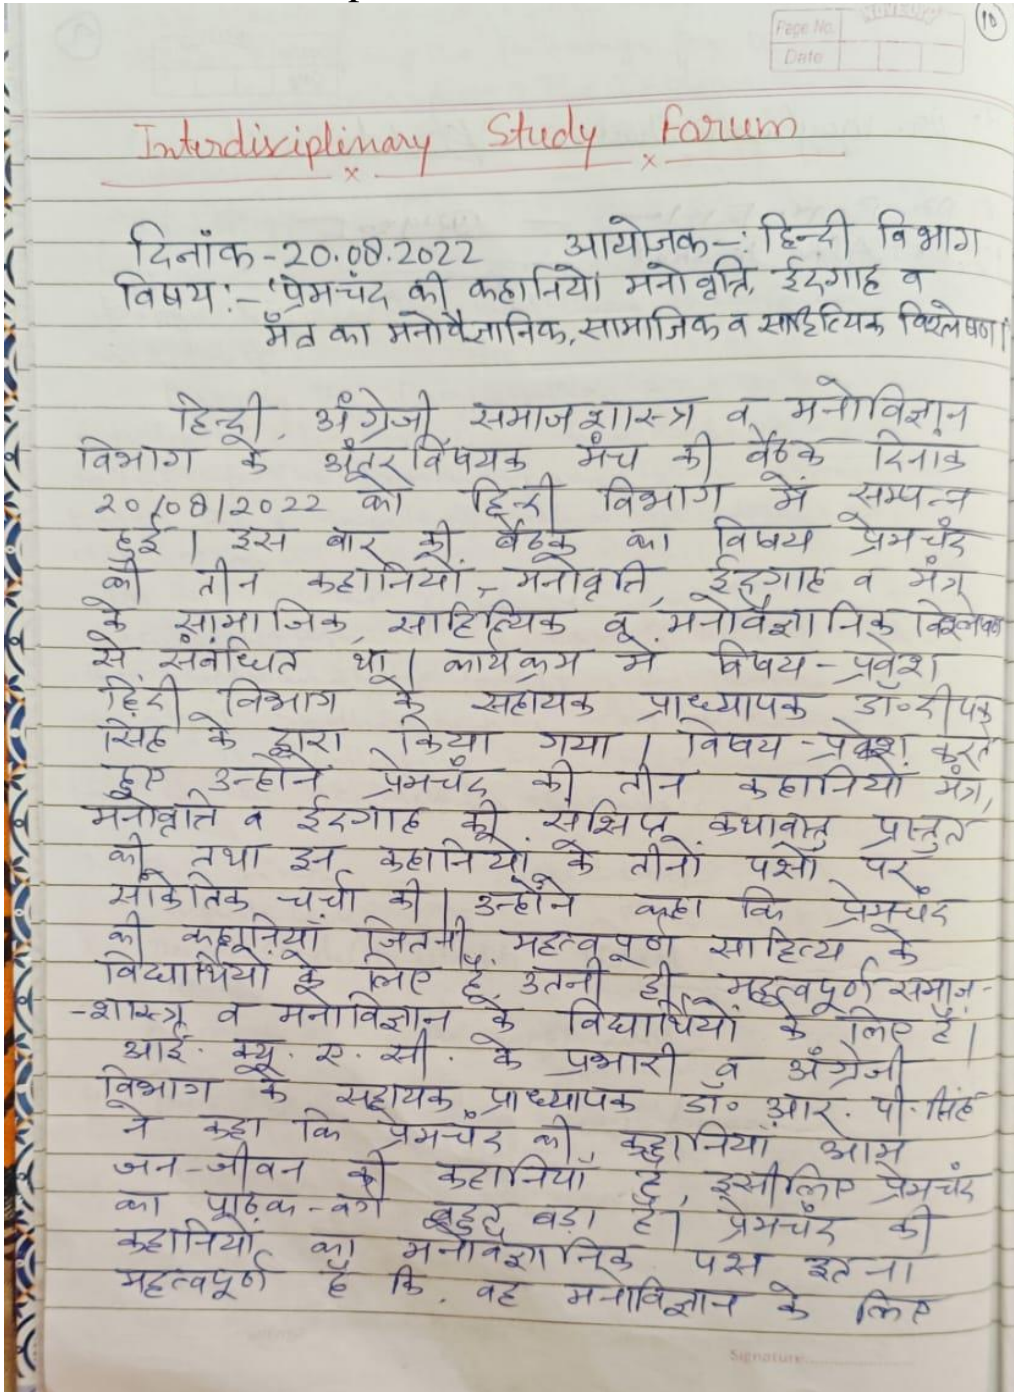 10
NOVELTY
Page No.
Date
Interdisciplinary Study Forum
दिनांक-20.08.2022 आयोजक-: हिन्दी विभाग
विषय:- 'प्रेमचंद की कहानियों मनोवृत्ति, ईदगाह व
मंत्र का मनोवैज्ञानिक, सामाजिक व साहित्यिक विश्लेषण।
हिन्दी, अंग्रेजी समाजशास्त्र व मनोविज्ञान
विभाग के अंतरविषयक मंच की बैठक दिनांक
20/08/2022 को हिन्दी विभाग में सम्पन्न
हुई। इस बार की बैठक का विषय प्रेमचंद
की तीन कहानियों,- मनोवृत्ति, ईदगाह व मंत्र
के सामाजिक, साहित्यिक व मनोवैज्ञानिक विश्लेषण
से संबंधित था। कार्यक्रम में विषय-प्रवेश
हिंदी विभाग के सहायक प्राध्यापक डॉ० दीपक
सिंह के द्वारा किया गया। विषय-प्रवेश करते
हुए उन्होंने प्रेमचंद की तीन कहानियों मंत्र,
मनोवृत्ति व ईदगाह की संक्षिप्त कथावस्तु प्रस्तुत
की तथा इन कहानियों के तीनों पक्षों पर
सांकेतिक चर्चा की। उन्होंने कहा कि प्रेमचंद
की कहानियाँ जितनी महत्वपूर्ण साहित्य के
विद्यार्थियों के लिए है, उतनी ही महत्वपूर्ण समाज-
-शास्त्र व मनोविज्ञान के विद्यार्थियों के लिए है।
आई. क्यू. ए. सी. के प्रभारी व अंग्रेजी
विभाग के सहायक प्राध्यापक डॉ० आर. पी. सिंह
ने कहा कि प्रेमचंद की कहानियाँ आम
जन-जीवन की कहानियाँ है, इसीलिए प्रेमचंद
का पाठक-वर्ग बहुत बड़ा है। प्रेमचंद की
कहानियों का मनोवैज्ञानिक पक्ष इतना
महत्वपूर्ण है कि वह मनोविज्ञान के लिए
Signature